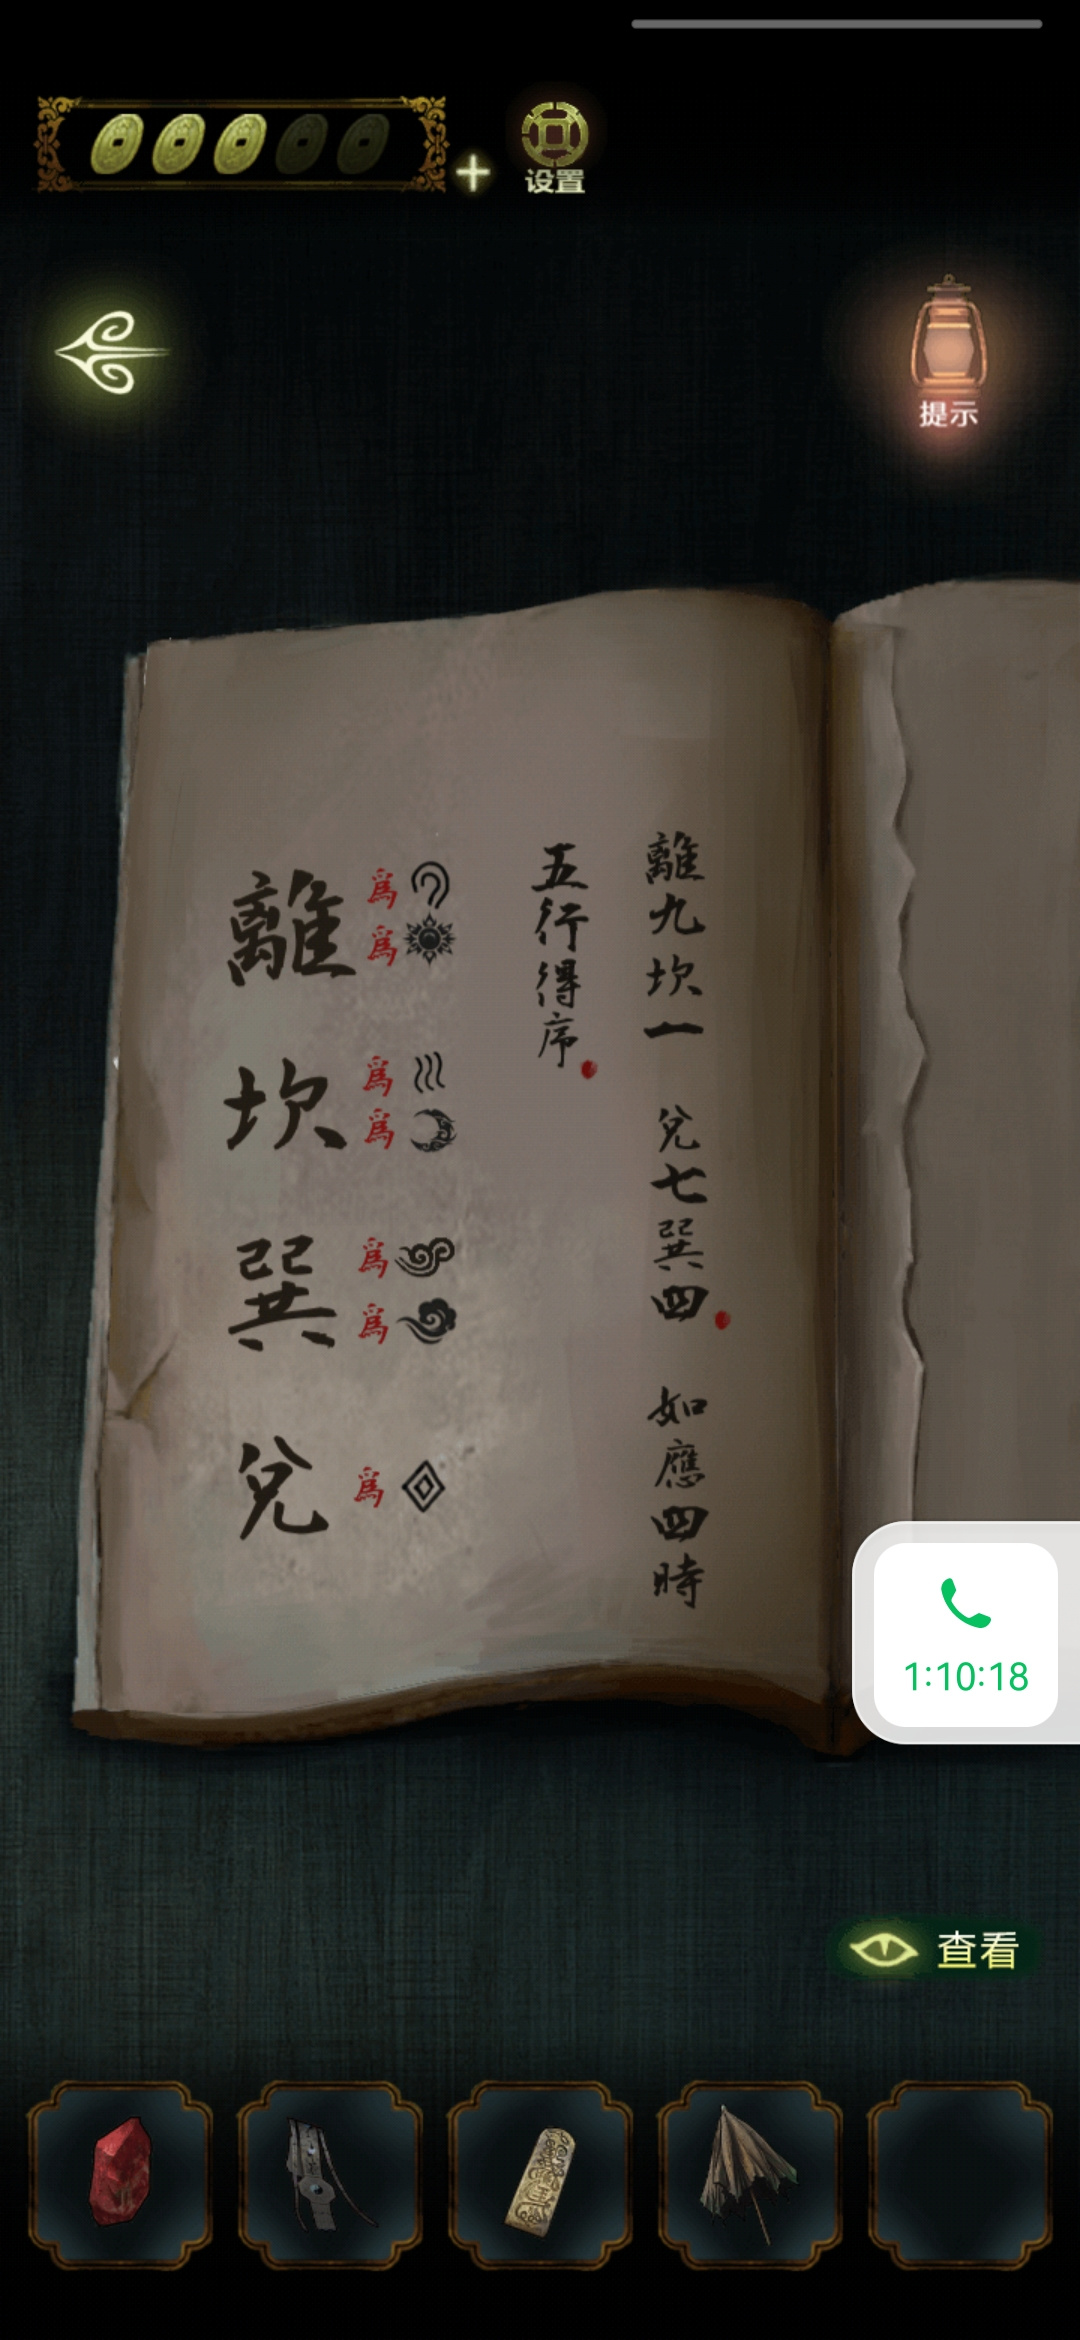 设置
提示
離九坎一 兌七巽四 如應四時
五行得序
離 為 為
坎 為 為
巽 為 為
兌 為
1:10:18
查看